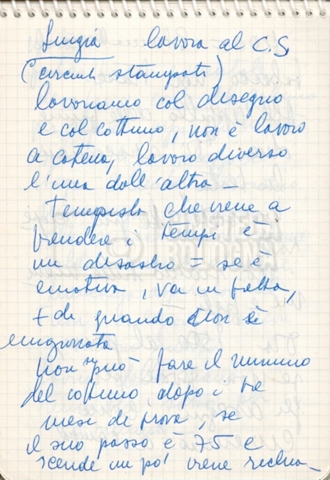 Luigia lavora al C.S
(circuiti stampati)
lavoriamo col disegno
e col cottimo, non è lavoro
a catena, lavoro diverso
l'una dall'altra -
tempista che viene a
prendere i tempi è
un disastro = se è
emotiva, va in palla,
+ di quando non è
emozionata
non può fare il minimo
del cottimo dopo i tre
mesi di prova, se
il suo passo è 75 e
scende un po' viene richia-